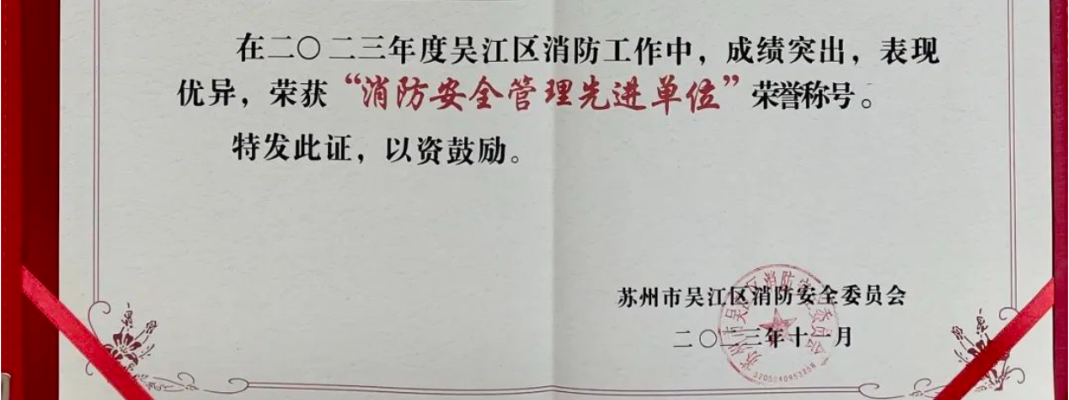 在二〇二三年度吴江区消防工作中，成绩突出，表现
优异，荣获“消防安全管理先进单位”荣誉称号。
特发此证，以资鼓励。
苏州市吴江区消防安全委员会
二〇二三年十一月